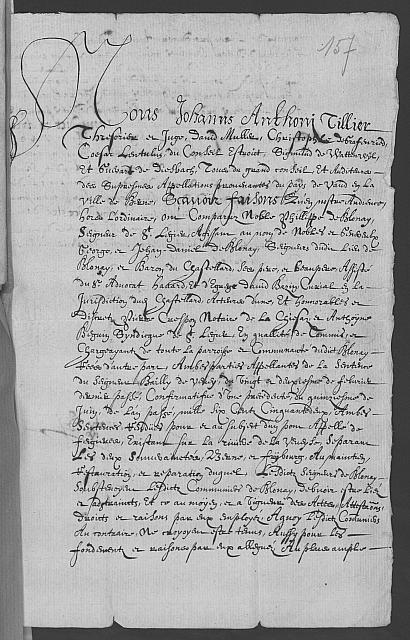 157
Nous Johanns Anthonj Tillier
Thresorier et Juge, David Muller, Christophle de Grafenried,
Cæsar Lentulus du Conseil Estroict, Sigmund de Wattewyl,
Et de Diesbach, Tous du grand conseil, Et Auditeurs
des Supresmes Appellations provenantes du pays de Vaud en la
Ville de Berne, Sçavoir faisons Que en nostre Audience
hors Lordinaire, ont Comparu Noble Philippe de Blonay,
Seigneur de St. Legier, Agissant au nom de Nobles et
George, et Jehan Daniel de Blonay, Seigneurs dudit Lieu de
Blonay, et Baron du Chastellard, ses pere, et beaupere, Assisté
du Sr. Advocat et David Curial en la
Jurisdiction dudit Chastellard, Acteurs dune, Et honnorables et
discrets Pierre Notaire de la et Anthoyne
Beguin Syndicque de St. Legier, En qualité de Commis, et
Chargeayant de toute la parroisse et Communauté dudict Blonay
Rées dautre part, Ambes parties Appellantes de la Sentence
du Seigneur Baillif de Vevey du Vingt et deuxiesme de febvrier
dernier passé, Confirmatifve d'une precedente du quinziesme de
Juin, de Lan passé, mille Six Cent Cinquante deux, Ambes
Sentences Rendues pour et au subject du pont Appellé de
Feigueres, Existant sur la riviere de la Veveyse, Separant
Les deux Souverainetés, Berne et Frybourg, Au maintien,
Restauration, et reparation duquel Lesdicts Seigneurs de Blonay
Soubstenoyent Lesdicts Communiers de Blonay, debvoir estre Liez
et Adstraincts, Et ce au moyen, et Vigueur des Actes, Attestations
droicts et raisons par eux employez Aquoy Lesdicts Communiers
Au contraire, Ne croyoyent estre tenus, Aussy pour les
fondements et raisons par eux alleguez Au plus ample